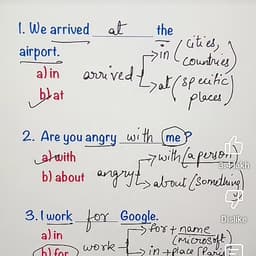 1. We arrived at the
airport.
a) in
b) at
arrived
in (cities,
countries)
at (specific
places)
2. Are you angry with me?
a) with
b) about
angry
with (a person)
about (something)
3. I work for Google.
a) in
b) for
work
for + name
(microsoft)
in + place
Dislike